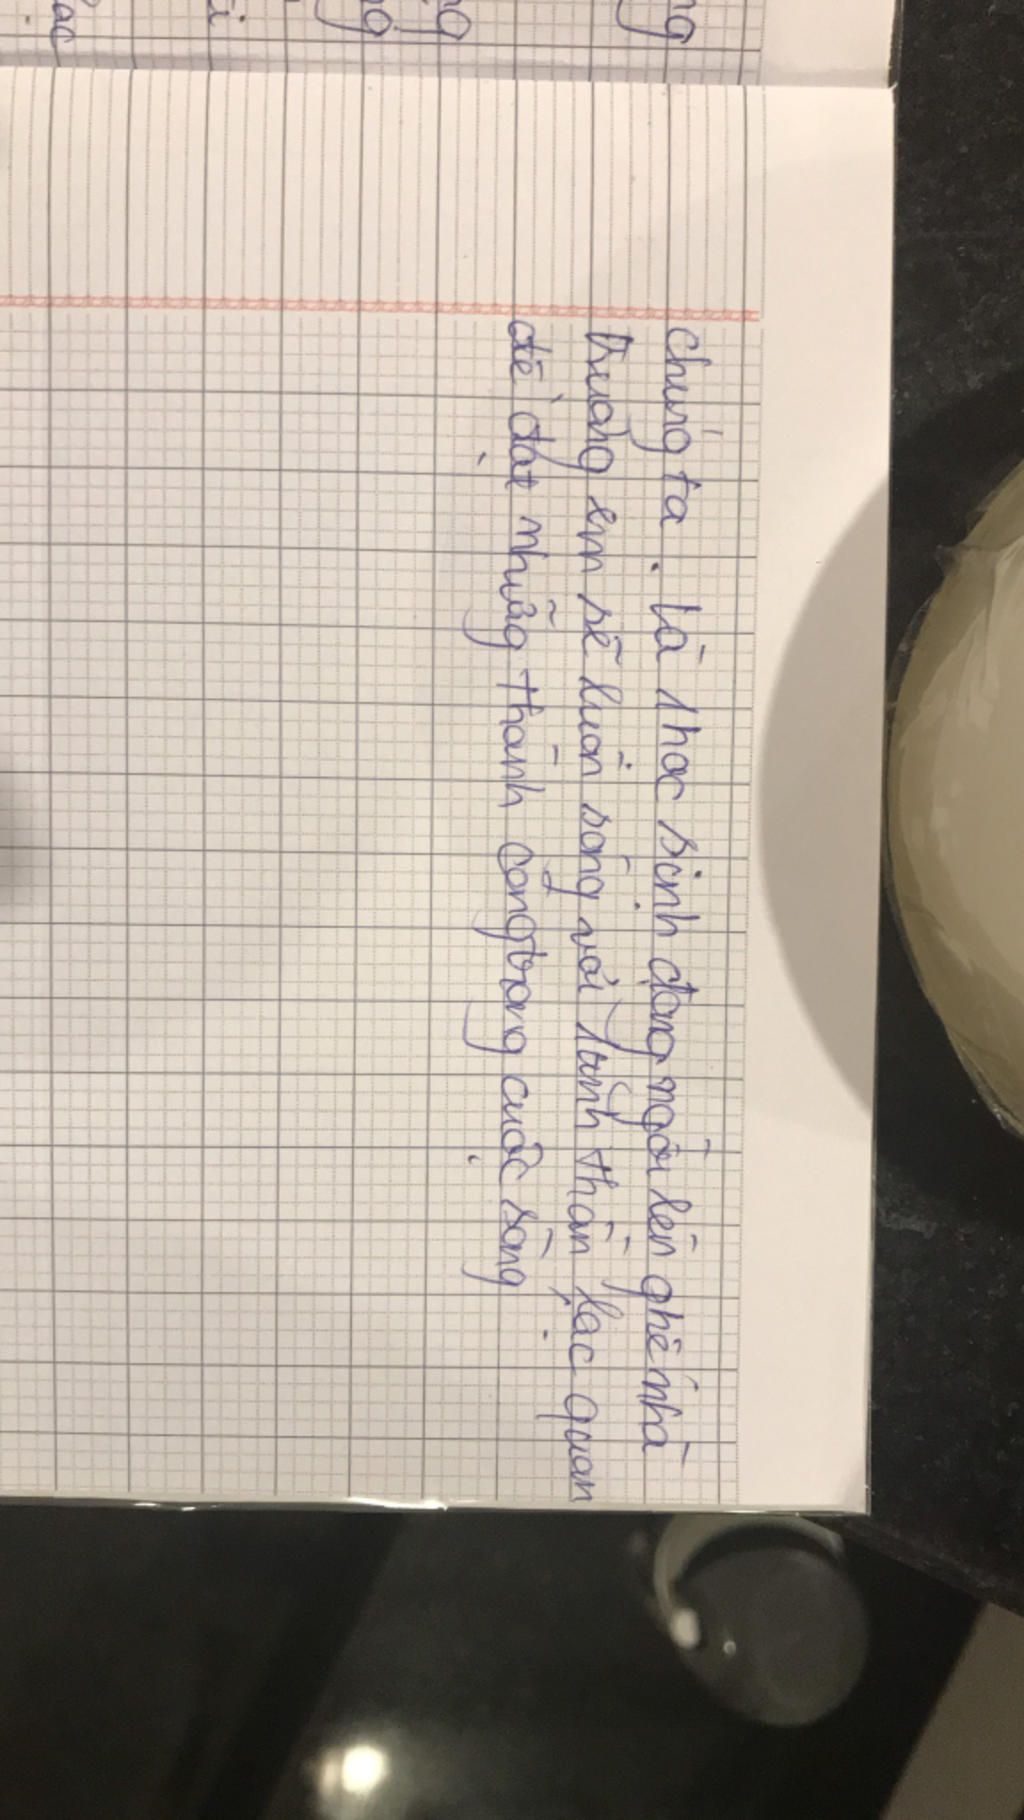 chúng ta. Là 1 học sinh đang ngồi lên ghế nhà
trường em sẽ luôn sống với 1 tinh thần lạc quan
để đạt những thành công trong cuộc sống.